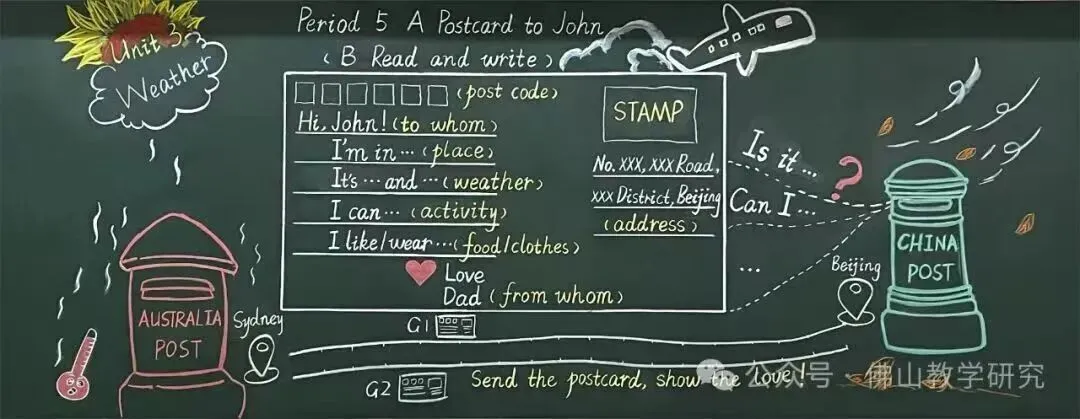 Unit 3
Weather
Period 5 A Postcard to John
(B Read and write)
(post code)
Hi, John! (to whom)
I'm in … (place)
It's … and … (weather)
I can … (activity)
I like/wear … (food/clothes)
Love
Dad (from whom)
STAMP
No. XXX, XXX Road,
XXX District, Beijing
(address)
Is it …
?
Can I …
…
AUSTRALIA
POST
Sydney
Beijing
CHINA
POST
G1
G2
Send the postcard, show the love!
公众号·佛山教学研究